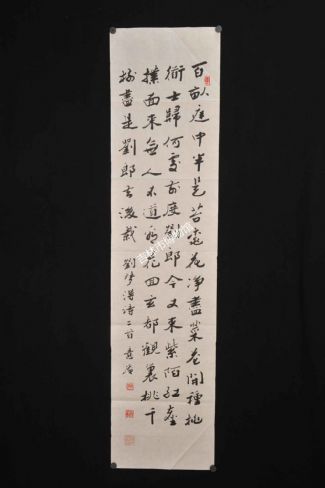 百亩庭中半是苔桃花净盡菜花開種桃
衜士歸何處前度劉郎今又來紫陌红塵
撲面來無人不道看花回玄都觀裏桃千
樹盡是劉郎去後栽 劉夢得詩二首